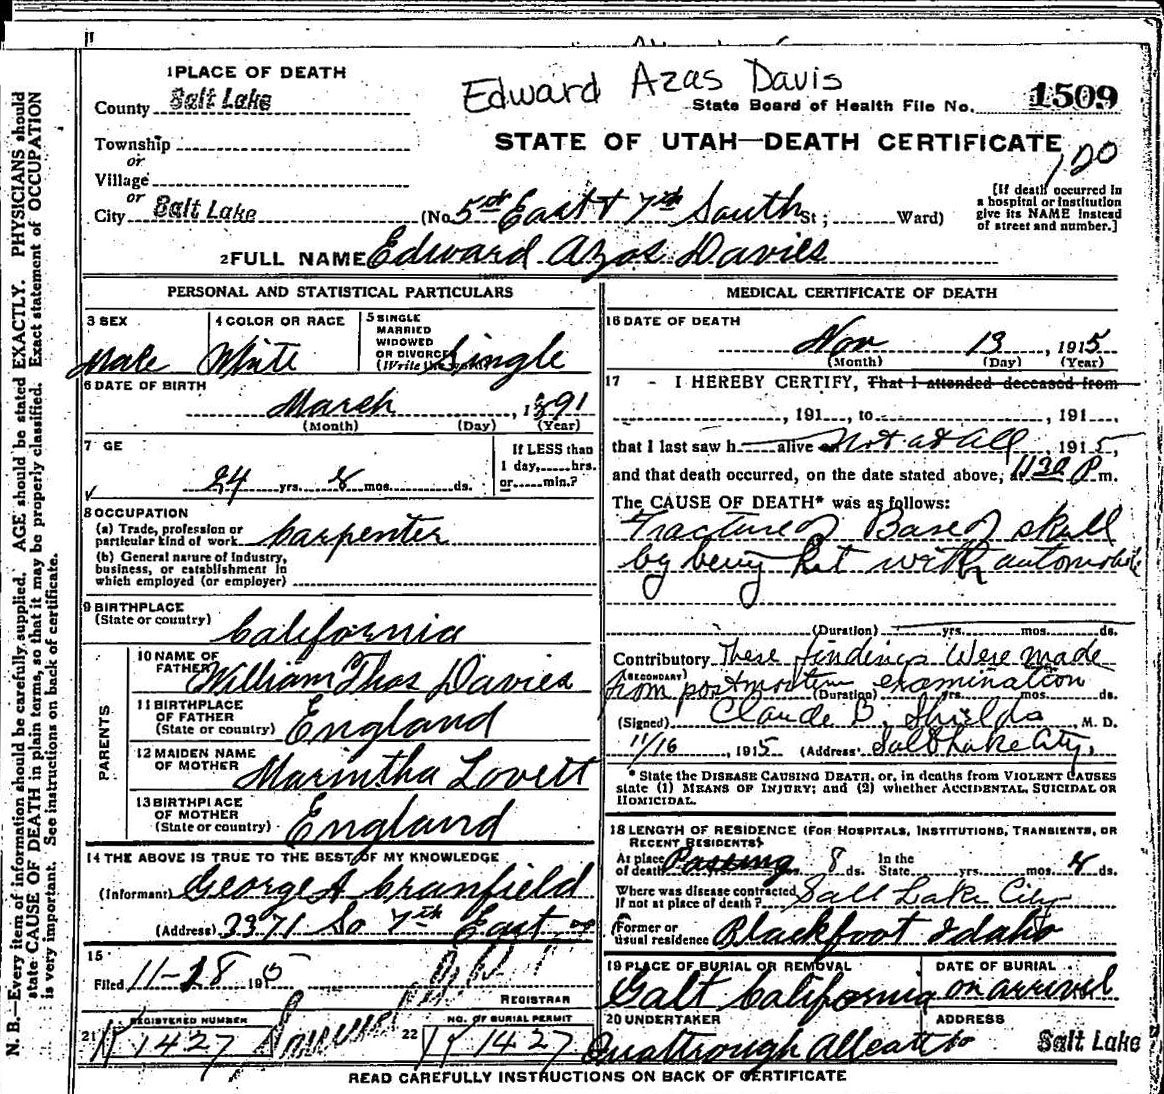 Edward Azas Davis
1 PLACE OF DEATH
County Salt Lake
State Board of Health File No. 1509
Township
or
STATE OF UTAH—DEATH CERTIFICATE
120
Village
or
City Salt Lake (No. 5th East + 7th South St; Ward)
[If death occurred in
a hospital or institution
give its NAME instead
of street and number.]
2 FULL NAME Edward Azas Davies
PERSONAL AND STATISTICAL PARTICULARS
3 SEX
Male
4 COLOR OR RACE
White
5 SINGLE
MARRIED
WIDOWED
OR DIVORCED
(Write the word)
Single
6 DATE OF BIRTH
March, 1891
(Month) (Day) (Year)
7 GE
24 yrs. 8 mos. ds.
If LESS than
1 day, hrs.
or min.?
8 OCCUPATION
(a) Trade, profession or
particular kind of work Carpenter
(b) General nature of industry,
business, or establishment in
which employed (or employer)
9 BIRTHPLACE
(State or country) California
PARENTS
10 NAME OF
FATHER William Thos Davies
11 BIRTHPLACE
OF FATHER
(State or country) England
12 MAIDEN NAME
OF MOTHER Marintha Lovett
13 BIRTHPLACE
OF MOTHER
(State or country) England
14 THE ABOVE IS TRUE TO THE BEST OF MY KNOWLEDGE
(Informant) George A Cranfield
(Address) 3371 So 7th East
15
Filed 11-18 1915
REGISTRAR
21 REGISTERED NUMBER
1427
22 NO. OF BURIAL PERMIT
1427
MEDICAL CERTIFICATE OF DEATH
16 DATE OF DEATH
Nov 13, 1915
(Month) (Day) (Year)
17 - I HEREBY CERTIFY, That I attended deceased from
, 191 , to , 191 ,
that I last saw h alive on Not at All, 1915,
and that death occurred, on the date stated above, at 1130 P m.
The CAUSE OF DEATH* was as follows:
Fracture of Base of skull
by being hit with automobile
(Duration) yrs. mos. ds.
Contributory These findings were made
(SECONDARY)
from postmortem examination
(Duration) yrs. mos. ds.
(Signed) Claude B. Shields, M. D.
11/16, 1915 (Address) Salt Lake City,
* State the DISEASE CAUSING DEATH, or, in deaths from VIOLENT CAUSES
state (1) MEANS OF INJURY; and (2) whether ACCIDENTAL, SUICIDAL OR
HOMICIDAL.
18 LENGTH OF RESIDENCE (FOR HOSPITALS, INSTITUTIONS, TRANSIENTS, OR
RECENT RESIDENTS)
At place
of death Passing 8 ds. In the
State yrs. mos. 8 ds.
Where was disease contracted,
If not at place of death? Salt Lake City
Former or
usual residence Blackfoot Idaho
19 PLACE OF BURIAL OR REMOVAL
Galt California
DATE OF BURIAL
on arrival
20 UNDERTAKER
ADDRESS
Salt Lake
READ CAREFULLY INSTRUCTIONS ON BACK OF CERTIFICATE
N. B.—Every item of information should be carefully supplied. AGE should be stated EXACTLY. PHYSICIANS should
state CAUSE OF DEATH in plain terms, so that it may be properly classified. Exact statement of OCCUPATION
is very important. See instructions on back of certificate.